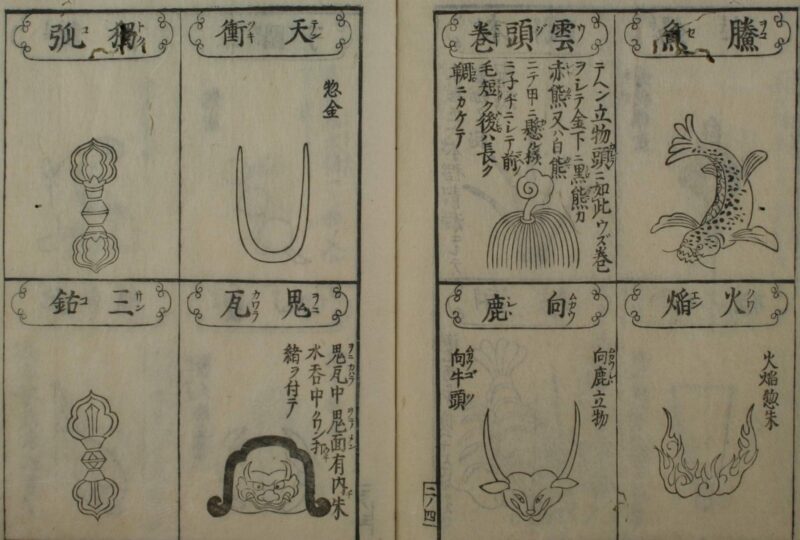 鰧魚
雲頭巻
テヘン立物頭ニ如此ウズ巻
ヲシテ金下ニ黒熊カ
赤熊又ハ白熊
ニテ甲ニ懸候
ニ子ヂニシテ前
毛短ク後ハ長ク
ニカケテ
火焔
火焔惣朱
向鹿
向鹿立物
向牛頭
二ノ四
天衝
惣金
獨弧
鬼瓦
鬼瓦中鬼面有内朱
水呑中クワン打
緒ヲ付テ
三鈷